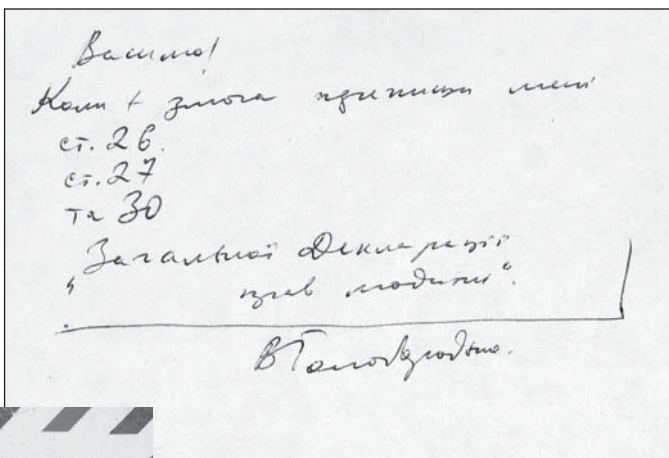 Василю!
Коли є змога пришли мені
ст. 26.
ст. 27
та 30
„Загальної Декларації
прав людини“.